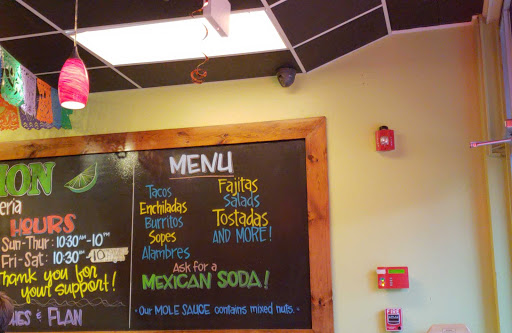 MON
eria
HOURS
Sun-Thur: 10:30AM-10PM
Fri-Sat: 10:30
Thank you for
your support!
& FLAN
MENU
Tacos
Enchiladas
Burritos
Sopes
Alambres
Fajitas
Salads
Tostadas
AND MORE!
Ask for a
MEXICAN SODA!
· Our MOLE SAUCE contains mixed nuts. ·